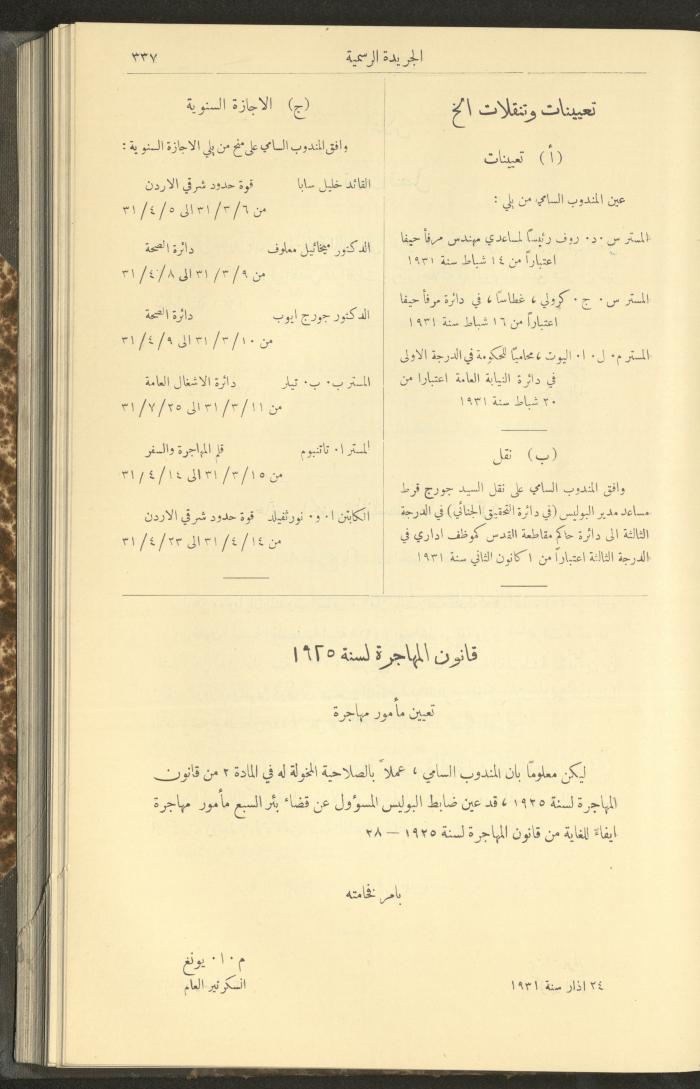 الجريدة الرسمية
٣٣٧
تعيينات وتنقلات الخ
(أ) تعيينات
عين المندوب السامي من يلي :
المستر س ٠ د ٠ روف رئيسًا لمساعدي مهندس مرفأ حيفا
اعتباراً من ١٤ شباط سنة ١٩٣١
المستر س ٠ ج ٠ كرولي ، غطاسًا ، في دائرة مرفأ حيفا
اعتباراً من ١٦ شباط سنة ١٩٣١
المستر م ٠ ل ٠ ا ٠ اليوت ، محاميًا للحكومة في الدرجة الاولى
في دائرة النيابة العامة اعتبارا من
٢٠ شباط سنة ١٩٣١
(ب) نقل
وافق المندوب السامي على نقل السيد جورج قرط
مساعد مدير البوليس (في دائرة التحقيق الجنائي) في الدرجة
الثالثة الى دائرة حاكم مقاطعة القدس كموظف اداري في
الدرجة الثالثة اعتباراً من ١ كانون الثاني سنة ١٩٣١
(ج) الاجازة السنوية
وافق المندوب السامي على منح من يلي الاجازة السنوية :
القائد خليل سابا قوة حدود شرقي الاردن
من ٣١/٣/٦ الى ٣١/٤/٥
الدكتور ميخائيل معلوف دائرة الصحة
من ٣١/٣/٩ الى ٣١/٤/٨
الدكتور جورج ايوب دائرة الصحة
من ٣١/٣/١٠ الى ٣١/٤/٩
المستر ب ٠ ب ٠ تيلر دائرة الاشغال العامة
من ٣١/٣/١١ الى ٣١/٧/٢٥
المستر ا ٠ تاتنبوم قلم المهاجرة والسفر
من ٣١/٣/١٥ الى ٣١/٤/١٤
الكابتن ا ٠ و ٠ نورثفيلد قوة حدود شرقي الاردن
من ٣١/٤/١٤ الى ٣١/٤/٢٣
قانون المهاجرة لسنة ١٩٢٥
تعيين مأمور مهاجرة
ليكن معلومًا بان المندوب السامي ، عملاً بالصلاحية المخولة له في المادة ٢ من قانون
المهاجرة لسنة ١٩٢٥ ، قد عين ضابط البوليس المسؤول عن قضاء بئر السبع مأمور مهاجرة
ايفاءً للغاية من قانون المهاجرة لسنة ١٩٢٥ – ٢٨
بامر فخامته
م ٠ ا ٠ يونغ
السكرتير العام
٢٤ اذار سنة ١٩٣١